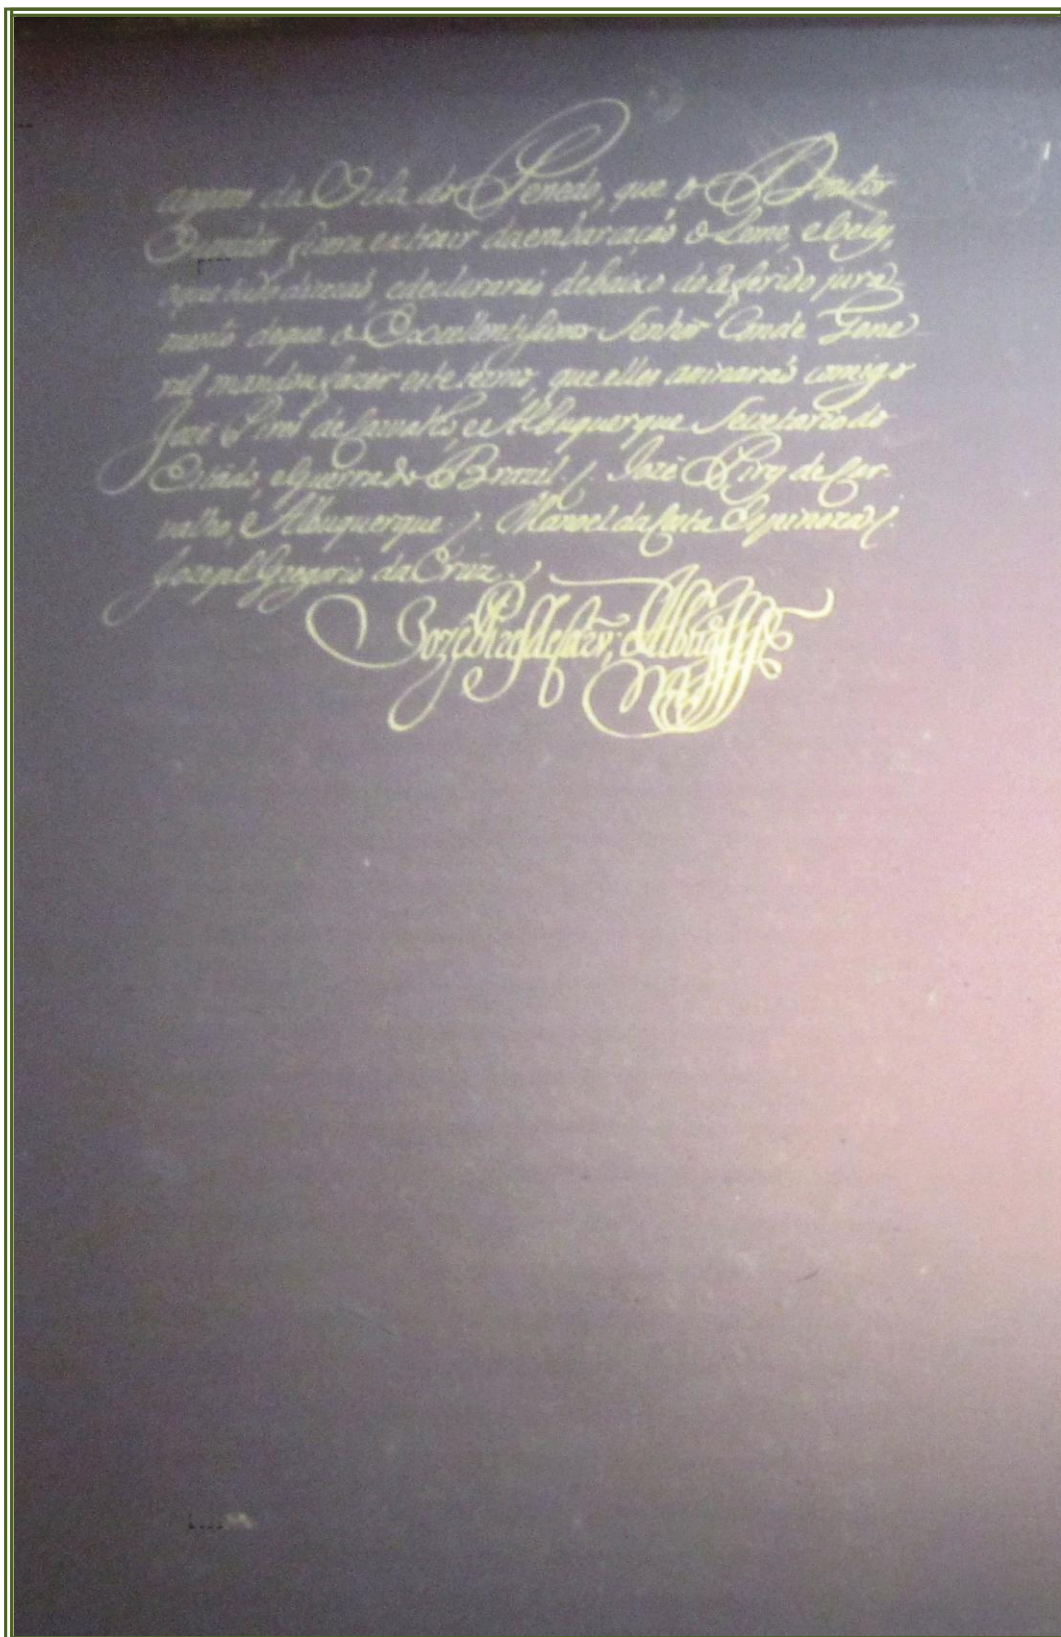 da Vila do Penedo, que o Doutor
Ouvidor fizera extrair da embarcaçaõ o Leme, e Vellas,
edeclararaõ debaixo do referido jura-
mento deque o Excellentissimo Senhor Conde Gene
ral mandou fazer este termo, que elles asinaraõ comigo
Jozé Pires de Carvalho, e Albuquerque Secretario do
Estado, eGuerra do Brazil./. Jozé Pires de Car-
valho, e Albuquerque ./. Manoel da Costa Espinoza ./.
Joseph Gregorio da Cruz ./.